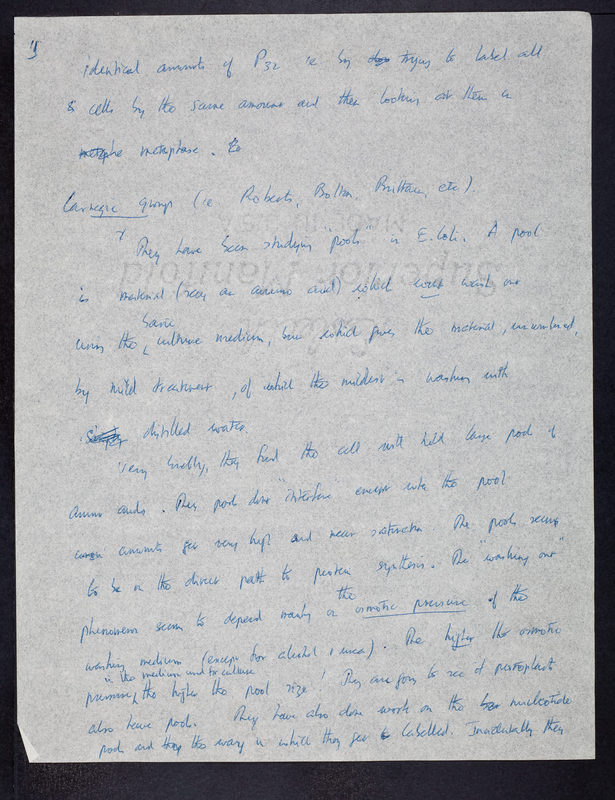 identical amounts of P32 ie by trying to label all
cells by the same amount and then looking at them in
metaphase.
Carnegie group (ie. Roberts, Bolton, Britten, etc).
They have been studying "pools" in E.Coli. A pool
is material (say an amino acid) which wont wash out
using the same culture medium, but which gives the material, unaltered,
by mild treatment, of which the mildest is washing with
distilled water.
Very briefly, they find the cell will hold large pools of
amino acids. The pools dont interfere except when the pool
amounts get very high and near saturation. The pools seem
to be on the direct path to protein synthesis. The "washing out"
phenomenon seems to depend mainly on the osmotic pressure of the
washing medium (except for alcohol & urea). The higher the osmotic
pressure, in the medium used to culture the higher the pool size! They are going to see if protoplasts
also have pools. They have also done work on the nucleotide
pools and the way in which they get labelled. Incidentally they